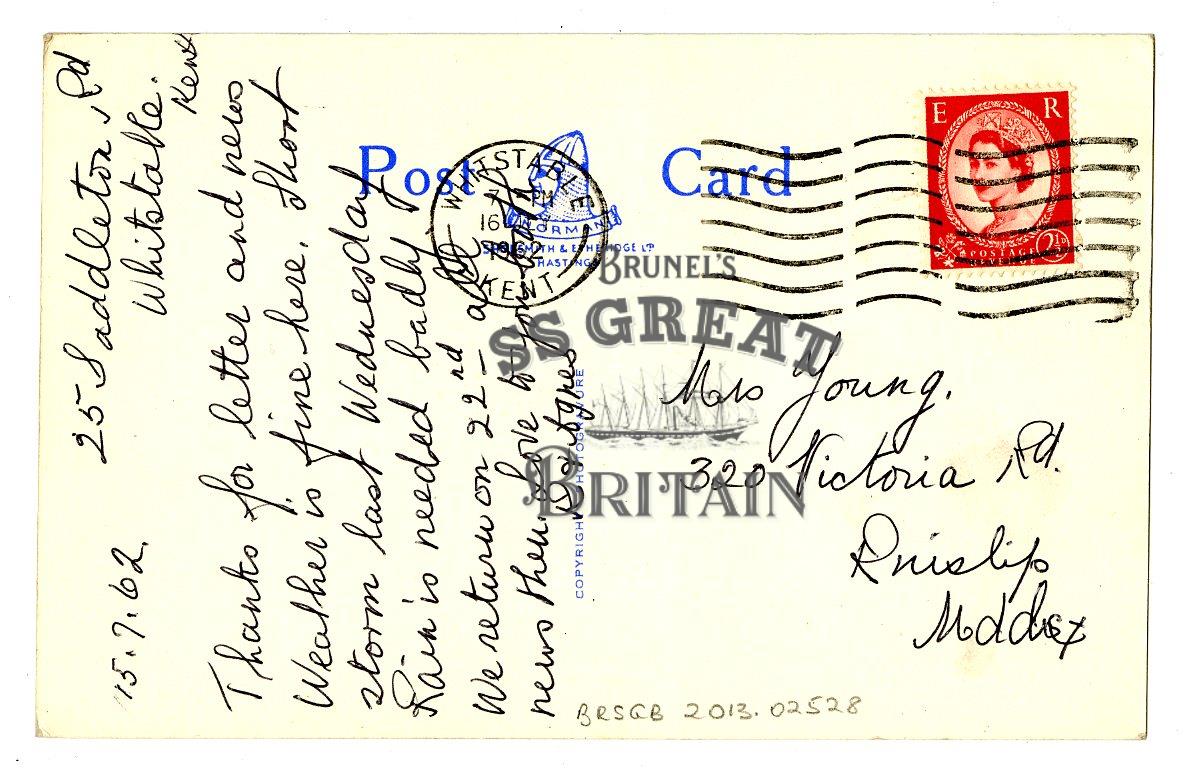 25 Saddleton Rd
Whitstable.
Kent
15.7.62.
Thanks for letter and news
Weather is fine here. Short
storm last Wednesday
Rain is needed badly
We return on 22nd – all
news then. Love to you both
Post Card
WHITSTABLE
PM
16
KENT
NORMAN
SHOESMITH & ETHERIDGE LTD
HASTINGS
COPYRIGHT PHOTOGRAVURE
E R
POSTAGE
2½D
BRUNEL'S
SS GREAT
BRITAIN
Mrs Young.
320 Victoria Rd.
Ruislip
Middlesex
BRSGB 2013.02528